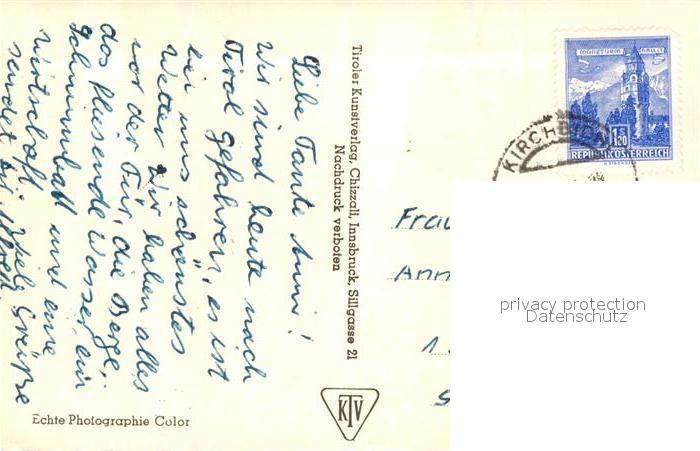 Liebe Tante Anni!
Wir sind heute nach
Tirol gefahren, es ist
hier uns schönstes
Wetter wir haben alles
vor der Tür, die Berge,
das fliesende Wasser, ein
Schwimmbad und eine
Wirtschaft. Viele Grüße
sendet dir
Tiroler Kunstverlag, Chizzali, Innsbruck, Sillgasse 21
Nachdruck verboten
Echte Photographie Color
KTV
MÜNZTURM HALL I.T.
S 1.20
REPUBLIK ÖSTERREICH
KIRCHBICHL
Frau
Ann
1
S
privacy protection
Datenschutz